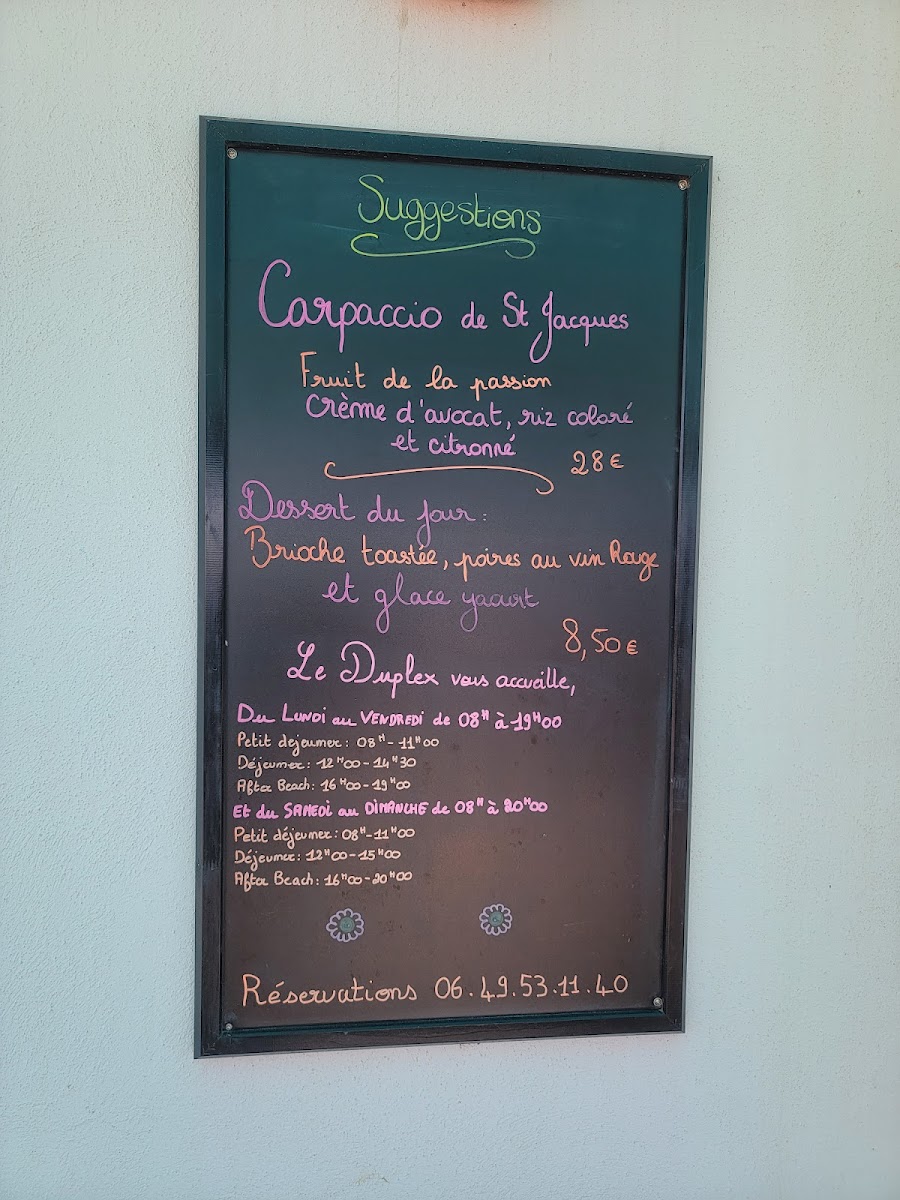 Suggestions
Carpaccio de St Jacques
Fruit de la passion
Crème d'avocat, riz coloré
et citronné
28€
Dessert du Jour:
Brioche toastée, poires au vin Rouge
et glace yaourt
8,50€
Le Duplex vous accueille,
Du LUNDI au VENDREDI de 08H à 19H00
Petit dejeuner: 08H-11H00
Déjeuner: 12H00-14H30
After Beach: 16H00-19H00
Et du SAMEDI au DIMANCHE de 08H à 20H00
Petit déjeuner: 08H-11H00
Déjeuner: 12H00-15H00
After Beach: 16H00-20H00
Réservations 06.49.53.11.40